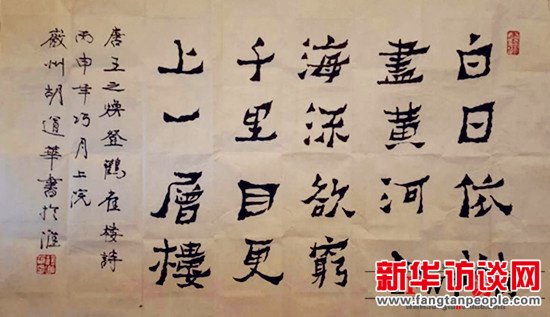 白日依
盡黃河
海流欲窮
千里目更
上一層樓
唐王之煥登鸛雀樓詩
丙申年巧月上浣
徽州胡道華書於
新华访谈网
www.fangtanpeople.com